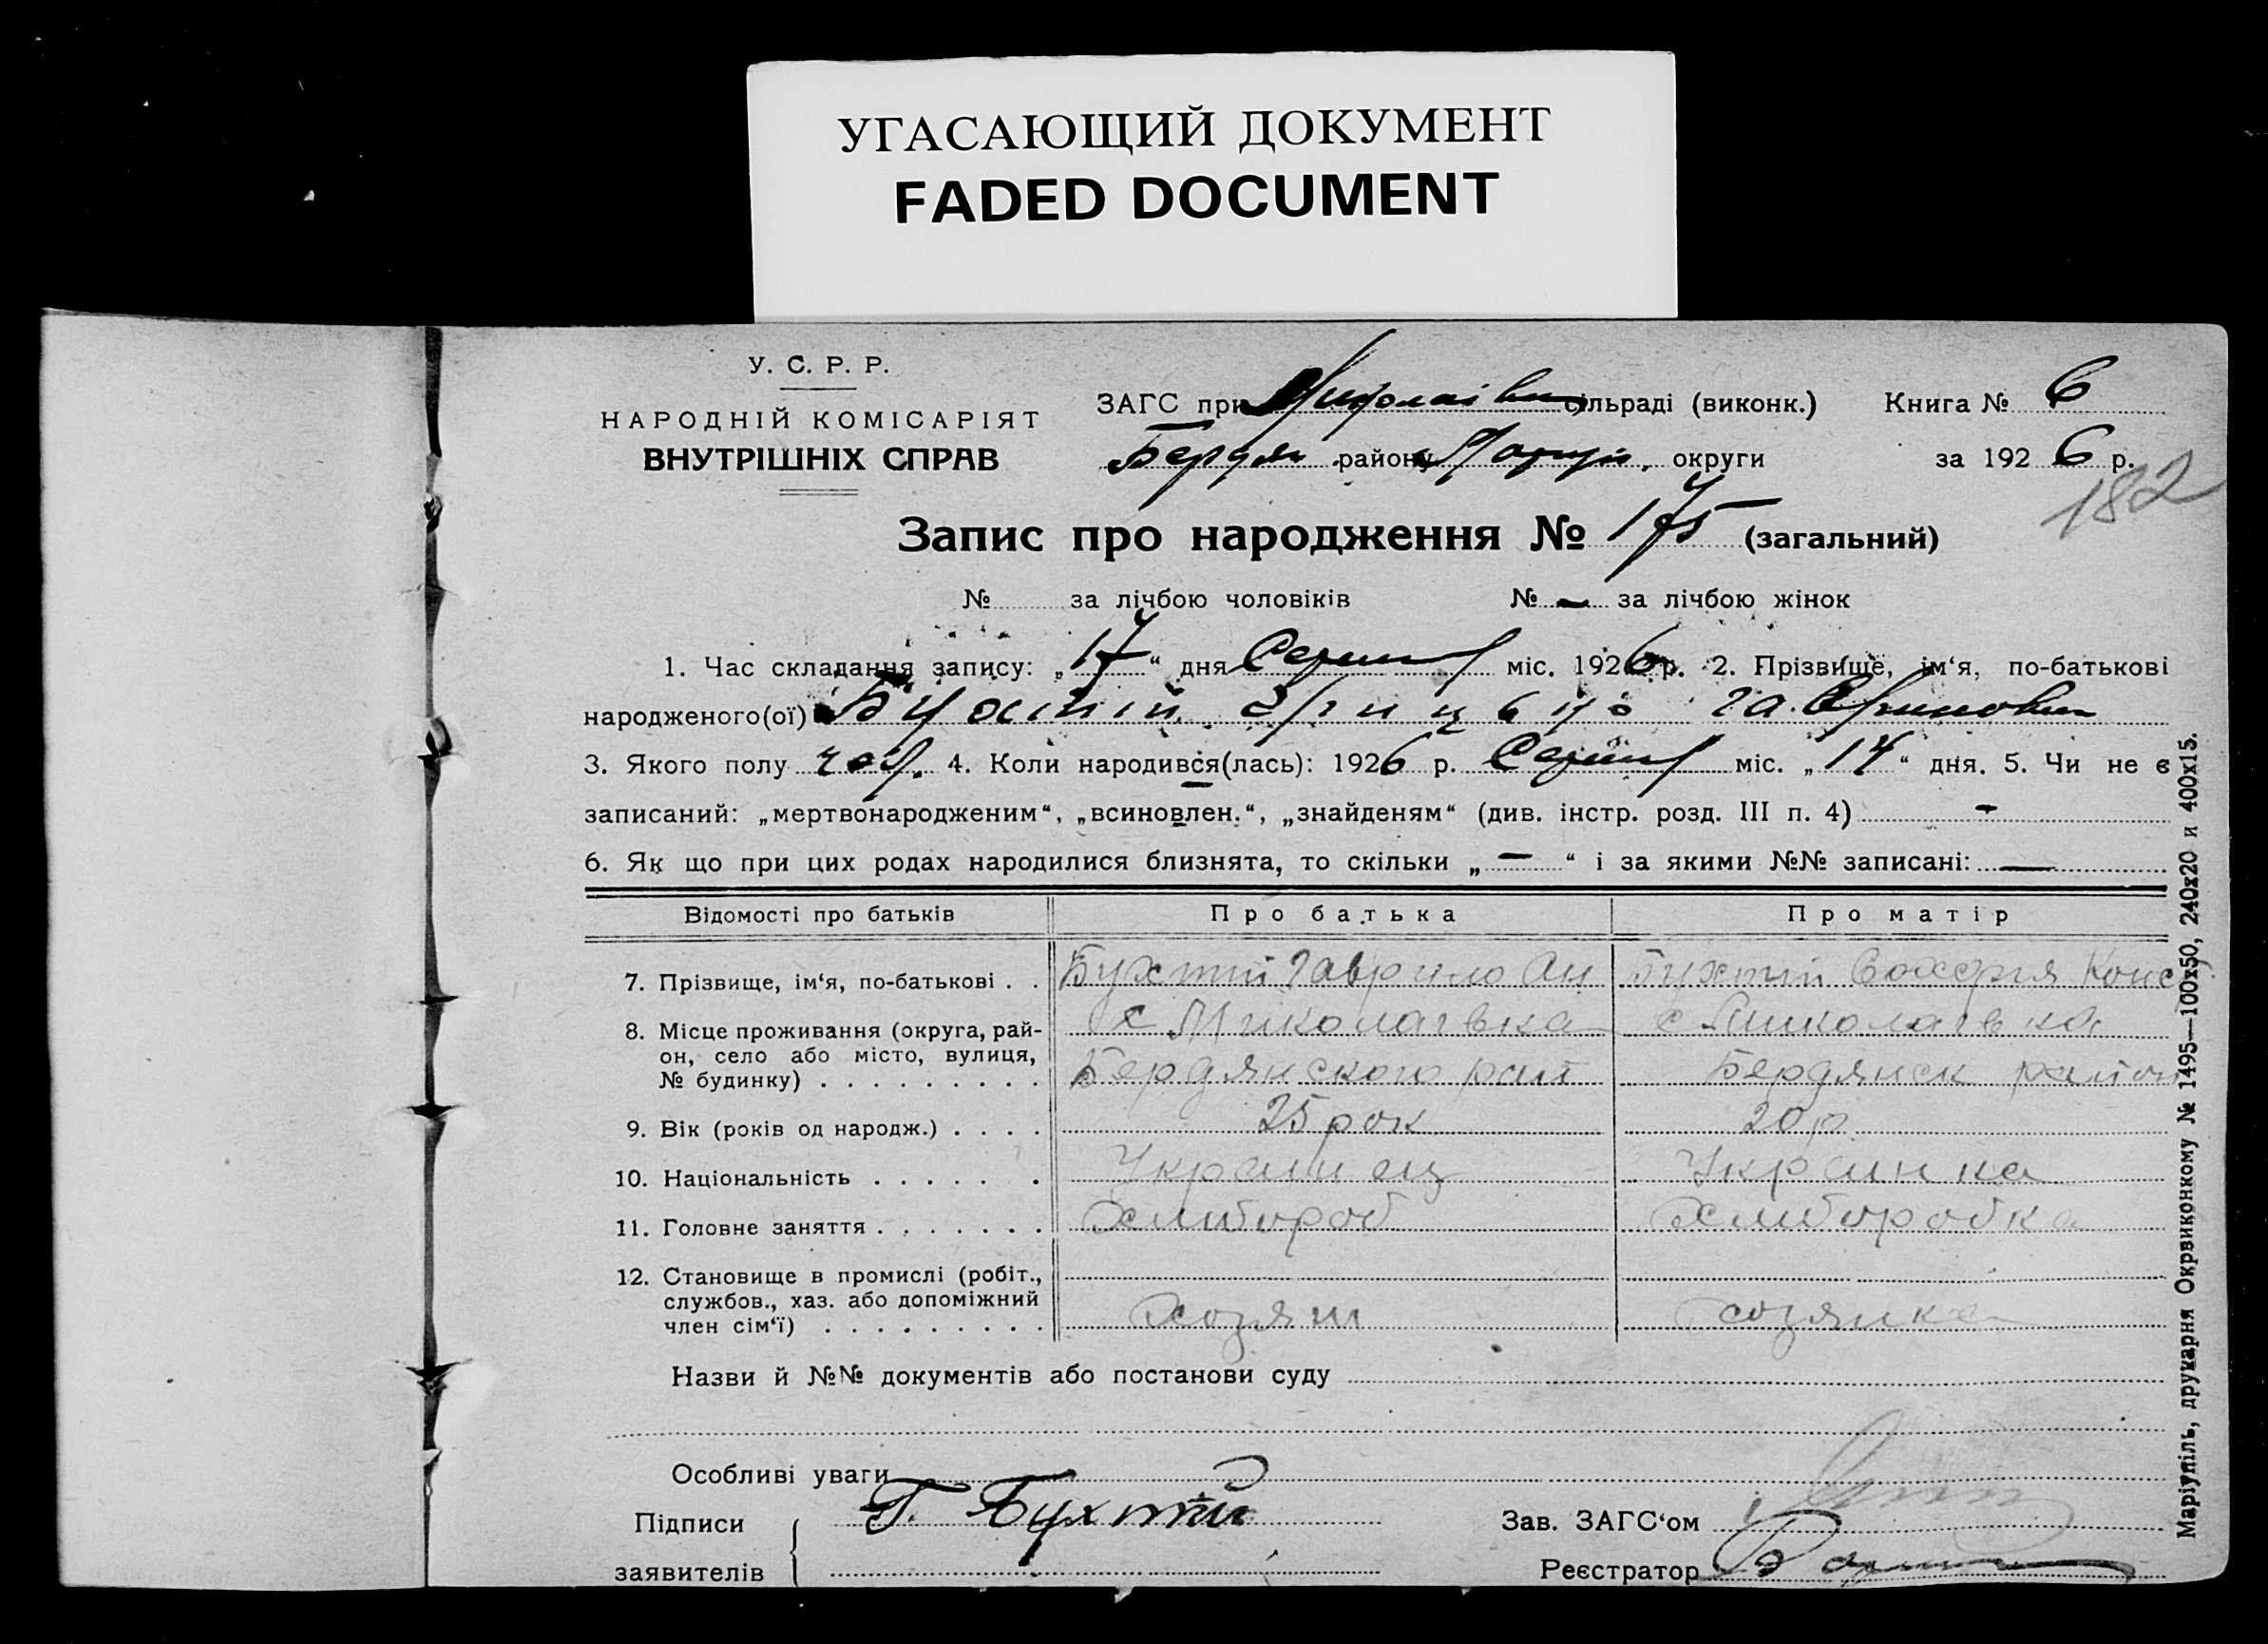 УГАСАЮЩИЙ ДОКУМЕНТ
FADED DOCUMENT
У. С. Р. Р.
НАРОДНІЙ КОМІСАРІЯТ
ВНУТРІШНІХ СПРАВ
ЗАГС при сільраді (виконк.) Книга № 6
Бердян району округи за 1926 р.
182
Запис про народження № 175 (загальний)
№ за лічбою чоловіків № — за лічбою жінок
1. Час складання запису: „17“ дня Серпня міс. 1926 р. 2. Прізвище, ім‘я, по-батькові
народженого(ої)
3. Якого полу чол. 4. Коли народився(лась): 1926 р. Серпня міс. „14“ дня. 5. Чи не є
записаний: „мертвонародженим“, „всиновлен.“, „знайденям“ (див. інстр. розд. III п. 4) -
6. Як що при цих родах народилися близнята, то скільки „—“ і за якими №№ записані: —
Відомості про батьків Про батька Про матір
7. Прізвище, ім‘я, по-батькові . . Бухтий Гаврило Ан Бухтий Конс
8. Місце проживання (округа, рай- с Миколаівка с Миколаівка
он, село або місто, вулиця, Бердянского рай Бердянск район
№ будинку) . . . . . . . . .
9. Вік (років од народж.) . . . . 25 рок 20 р.
10. Національність . . . . . . Украинец Украинка
11. Головне заняття . . . . . . . Хлибороб Хлиборобка
12. Становище в промислі (робіт.,
службов., хаз. або допоміжний
член сім‘ї) . . . . . . . . . Хозяин Хозяика
Назви й №№ документів або постанови суду
Особливі уваги
Підписи Г. Бухтий Зав. ЗАГС‘ом
заявителів Реєстратор
Маріупіль, друкарня Окрвиконкому № 1495—100х50, 240х20 и 400х15.